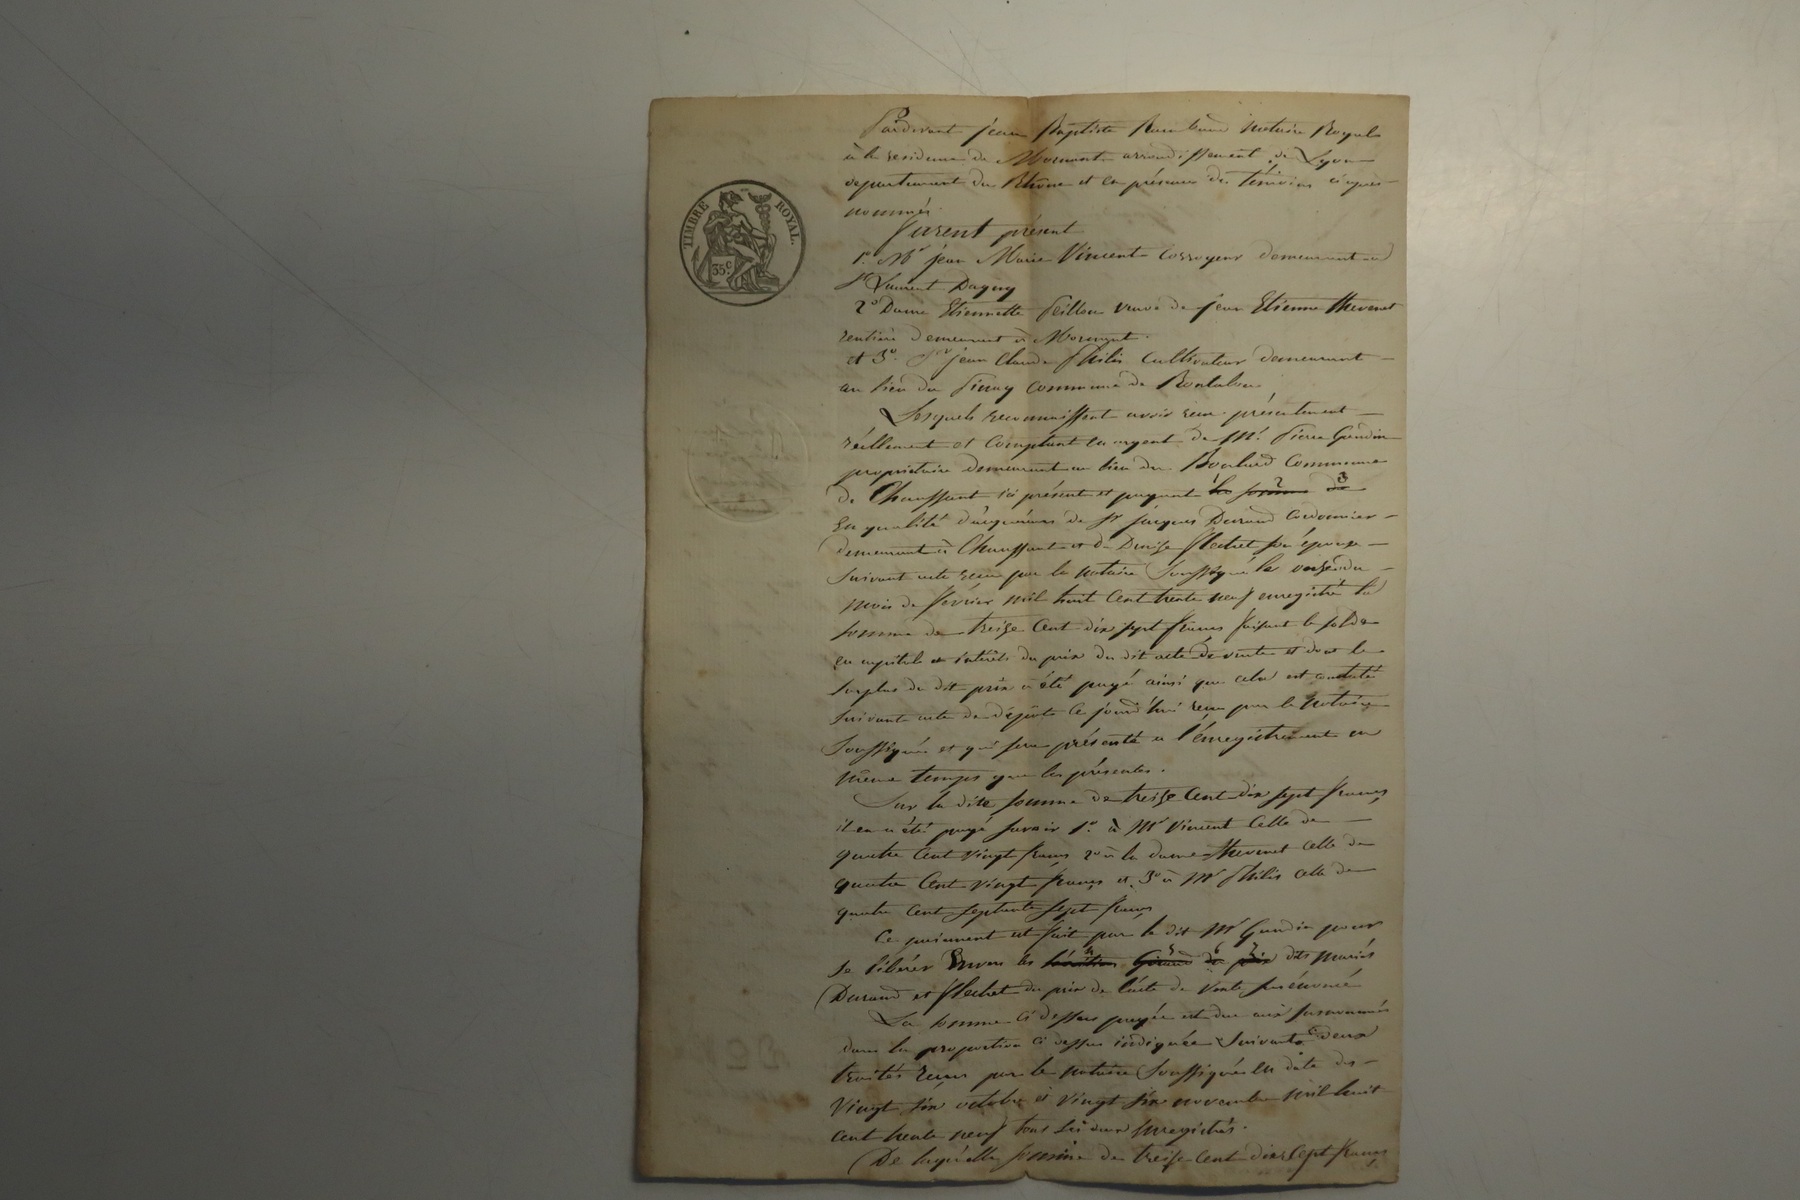 TIMBRE ROYAL.
35 c
Pardevant jean Baptiste Notaire Royal
à la residence de Mornant arrondissement de Lyon
departement du Rhône et en présence des témoins ci après
nommés
furent présent
1°. Mr jean Marie Vincent Corroyeur demeurant à
St Laurent Dagny
2° Dame Etiennette veuve de jean Etienne thevenet
rentière demeurant à Mornant.
et 3°. Sr jean Claude Philis Cultivateur demeurant
au lieu du Pinay Commune de Rontalon
Lesquels reconnaissent avoir reçu présentement
réellement et Comptant en argent de Mr. Pierre Gaudin
propriétaire demeurant au lieu du Commune
de Chaussant ici présent et payant la somme de
En qualité d'acquéreur de Sr jacques Durand Cordonnier
demeurant à Chaussant et de Denise flechet son épouse
suivant acte reçu par le notaire Soussigné le onze du
mois de février mil huit Cent trente neuf enregistré la
somme de treise Cent dix sept francs faisant le solde
en capital et intérêts du prix du dit acte de vente et dont le
surplus du dit prix a été payé ainsi que cela est constaté
suivant acte de dépôts Ce jourd'hui reçu par le Notaire
Soussigné et qui sera présenté a l'enregistrement en
même temps que les présentes.
Sur la dite somme de treise Cent dix sept francs
il en a été payé savoir 1°. à Mr Vincent Celle de
quatre Cent vingt francs 2° à la dame thevenet celle de
quatre Cent vingt francs et 3° à Mr Philis celle de
quatre cent septante sept francs
Ce paiement est fait par le dit Mr Gaudin pour
se libérer Envers les héritiers de prix dits mariés
Durand et flechet du prix de l'acte de vente susénoncé
La somme ci dessus payée est due aux susnommés
dans la proportion ci dessus indiquée Suivants deux
traités reçus par le notaire Soussigné en date des
Vingt six octobre et vingt six novembre mil huit
cent trente neuf tous les deux enregistrés.
De laquelle somme de treise Cent dix sept francs